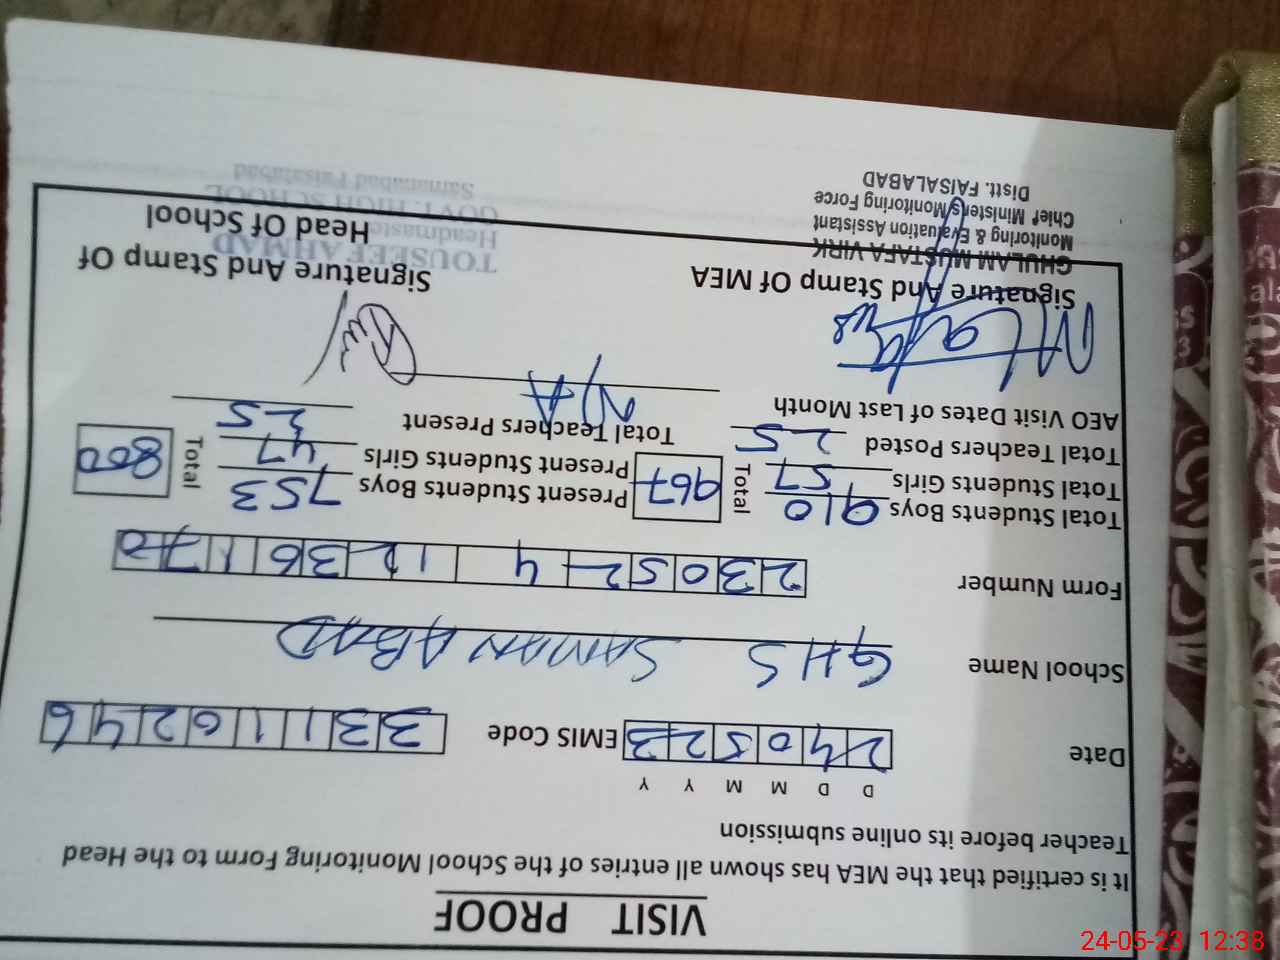 VISIT PROOF
It is certified that the MEA has shown all entries of the School Monitoring Form to the Head
Teacher before its online submission
D D M M Y Y
Date 240523 EMIS Code 33110246
School Name GHS SAMANABAD
Form Number 23052 4 1236170
Total Students Boys 910 Total 967 Present Students Boys 753 Total 800
Total Students Girls 57 Present Students Girls 47
Total Teachers Posted 25 Total Teachers Present 25
AEO Visit Dates of Last Month N/A
Signature And Stamp Of MEA
Signature And Stamp Of
Head Of School
GHULAM MUSTAFA VIRK
Monitoring & Evaluation Assistant
Chief Minister's Monitoring Force
Distt. FAISALABAD
TOUSEEF AHMAD
Headmaster
GOVT. HIGH SCHOOL
Samanabad Faisalabad
24-05-23 12:38